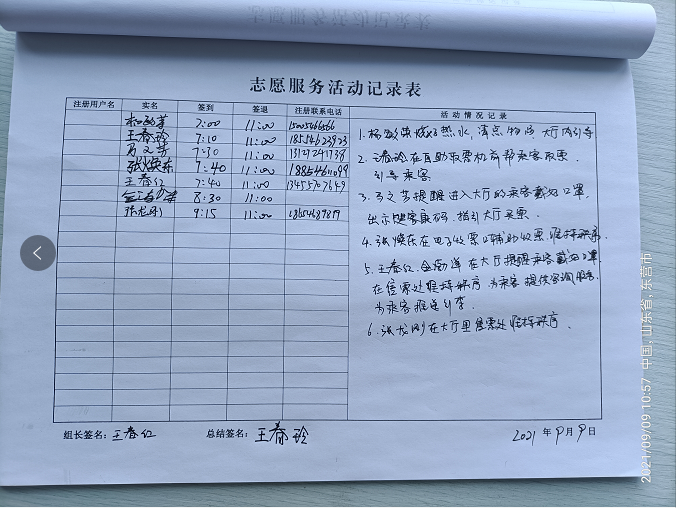 志愿服务活动记录表
注册用户名 实名 签到 签退 注册联系电话 活动情况记录
7:00 11:00
王春玲 7:10 11:00 18554623923
7:30 11:00 13127241738
张焕东 7:40 11:00 18854461099
王春红 7:40 11:00 13455707649
8:30 11:00
张龙刚 9:15 11:00
1. 烧好热水,清点物品,大厅内引导
2. 王春玲在自助取票机前帮乘客取票,
引导乘客.
3. 提醒进入大厅的乘客戴好口罩,
出示健康码,指引大厅买票.
4. 张焕东在电子收票口辅助收票,维持秩序.
5. 王春红. 在大厅提醒乘客戴好口罩
在售票处维持秩序 为乘客提供咨询服务
为乘客推运行李.
6. 张龙刚在大厅里售票处维持秩序.
组长签名:王春红 总结签名:王春玲 2021年9月9日
2021/09/09 10:57 中国, 山东省, 东营市